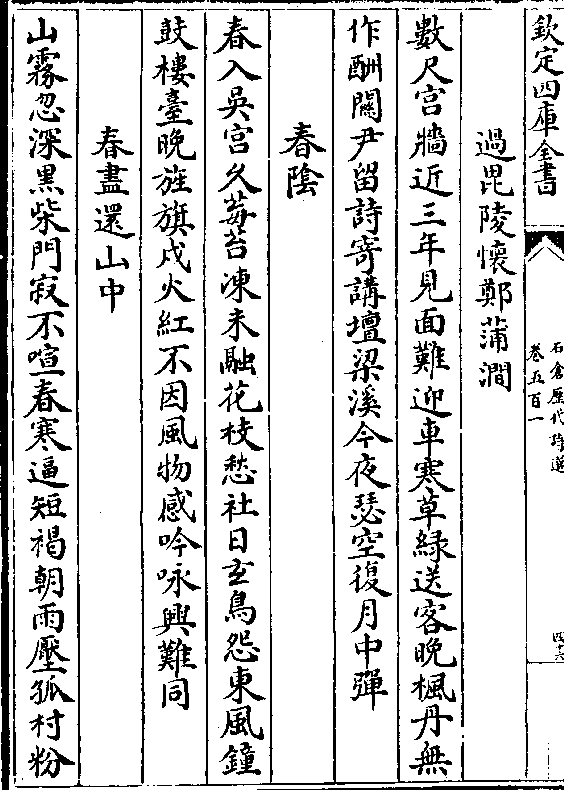 欽定四庫全書
石倉歷代詩選
卷五百一
四十六
過毘陵懷鄭蒲澗
數尺宮牆近三年見面難迎車寒草緑送客晚楓丹無
作酬關尹留詩寄講壇梁溪今夜瑟空復月中彈
春陰
春入吳宮久莓苔凍未融花枝愁社日玄鳥怨東風鐘
鼓樓臺晚旌旗戍火紅不因風物感吟咏興難同
春盡還山中
山霧忽深黒柴門寂不喧春寒逼短褐朝雨壓孤村粉